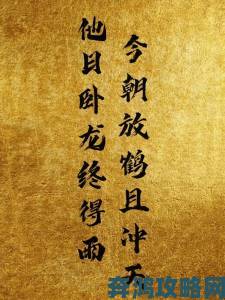 他日卧龙终得雨
今朝放鹤且冲天
弈鸿攻略网